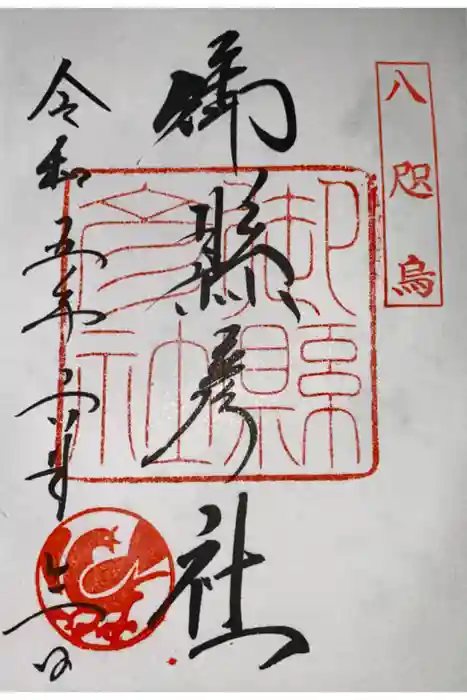 八咫烏
御縣彦社
御縣
彦社
令和五年
月
日